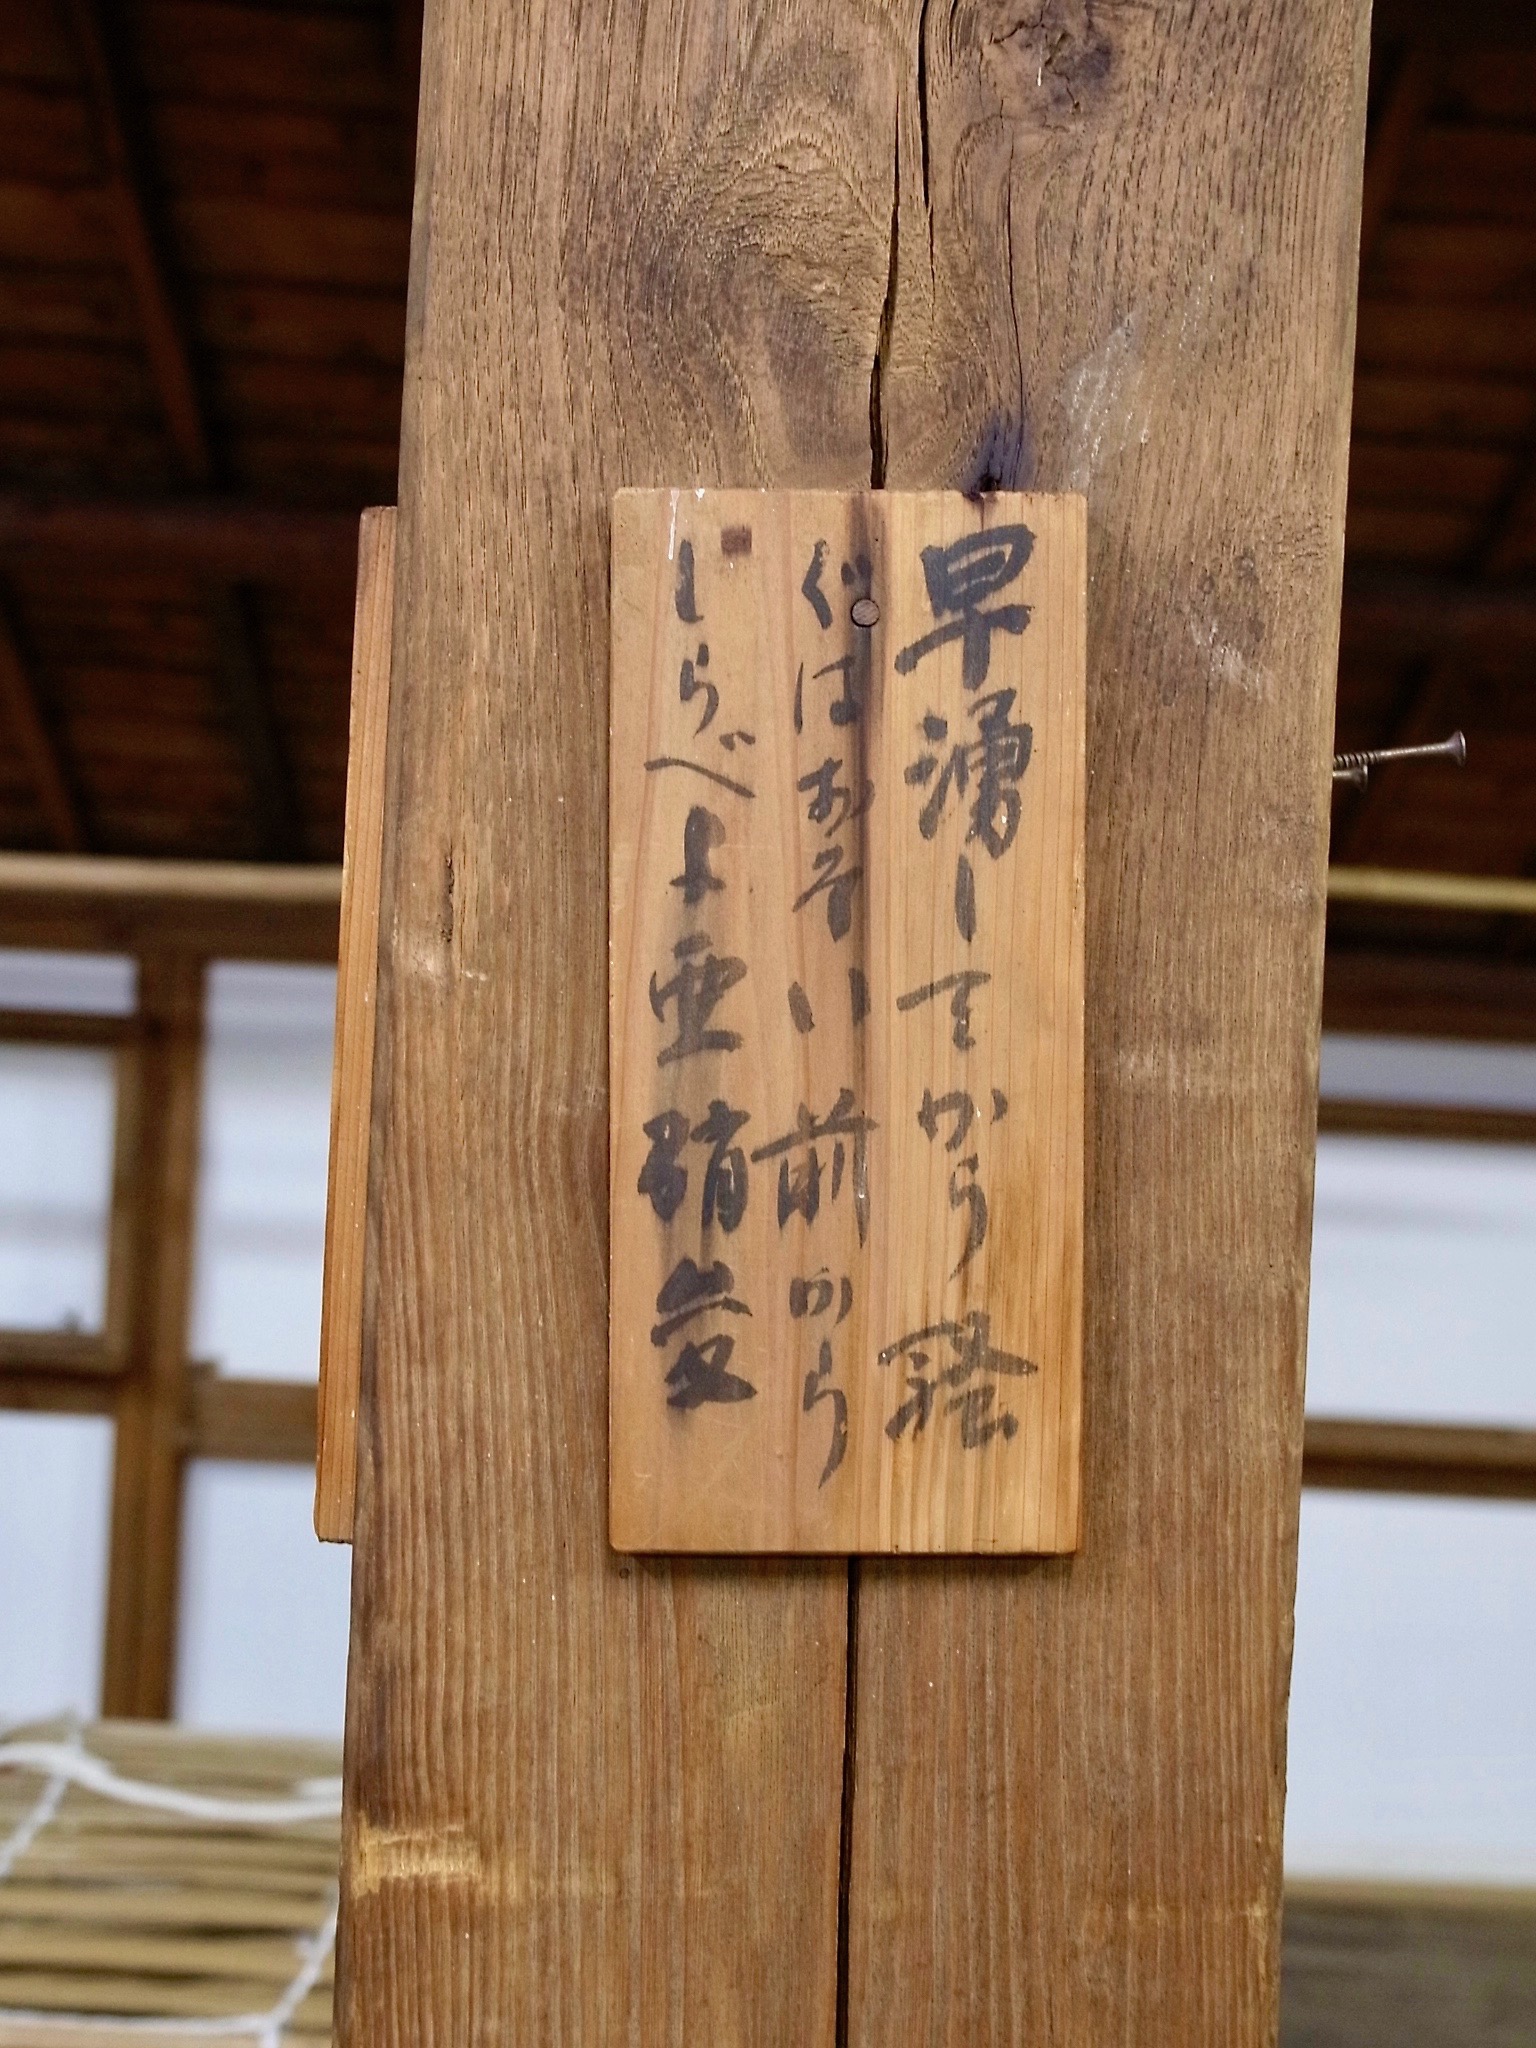 早湧してから騒
ぐはおそい前から
しらべよ亜硝酸